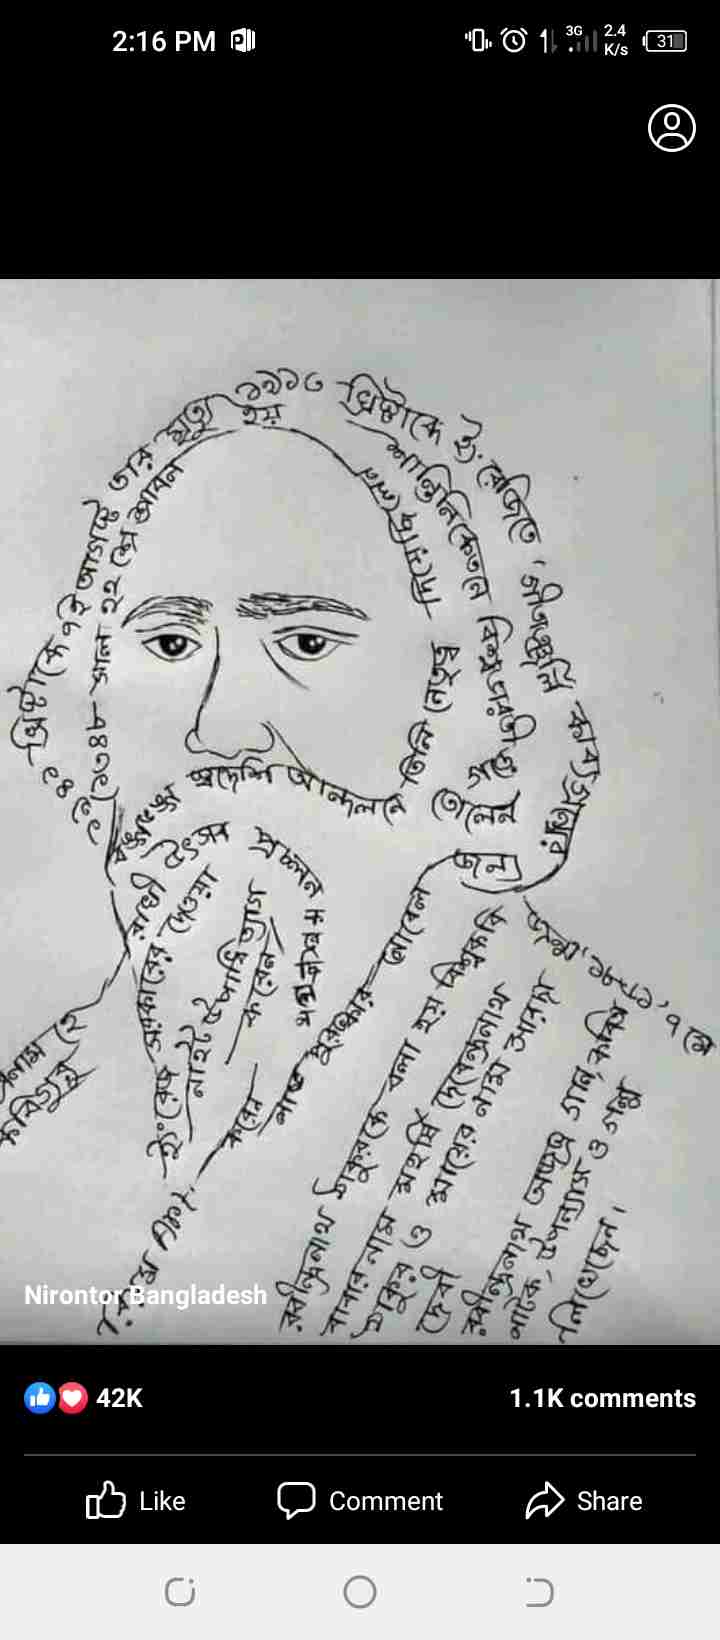 2:16 PM
3G
2.4
K/s
31
১৯১৩ খ্রিষ্টাব্দে ইংরেজিতে 'গীতাঞ্জলি কাব্যগ্রন্থের
জন্য
নোবেল
পুরস্কার লাভ
করেন
১৯৪১ খ্রিষ্টাব্দে ৭ই আগস্ট তার মৃত্যু হয়
(১৩৪৮ সাল ২২ শে শ্রাবন
শান্তিনিকেতনে বিশ্বভারতী গড়ে
তোলেন
তিনি নেতৃত্ব
স্বদেশি আন্দলনে
বঙ্গভঙ্গ
উৎসব প্রচলন করেন
রাখী
ইংরেজ সরকারের দেওয়া
নাইট উপাধি ত্যাগ
করেন
প্রনাম হে
কবিগুরু
জন্ম ১৮৬১, ৭ মে
রবীন্দ্রনাথ ঠাকুরকে বলা হয় বিশ্বকবি
বাবার নাম মহর্ষি দেবেন্দ্রনাথ
ঠাকুর ও মায়ের নাম সারদা
দেবী
রবীন্দ্রনাথ অজস্র গান, কবিতা
নাটক, উপন্যাস ও গল্প
লিখেছেন।
Nirontor Bangladesh
42K
1.1K comments
Like
Comment
Share